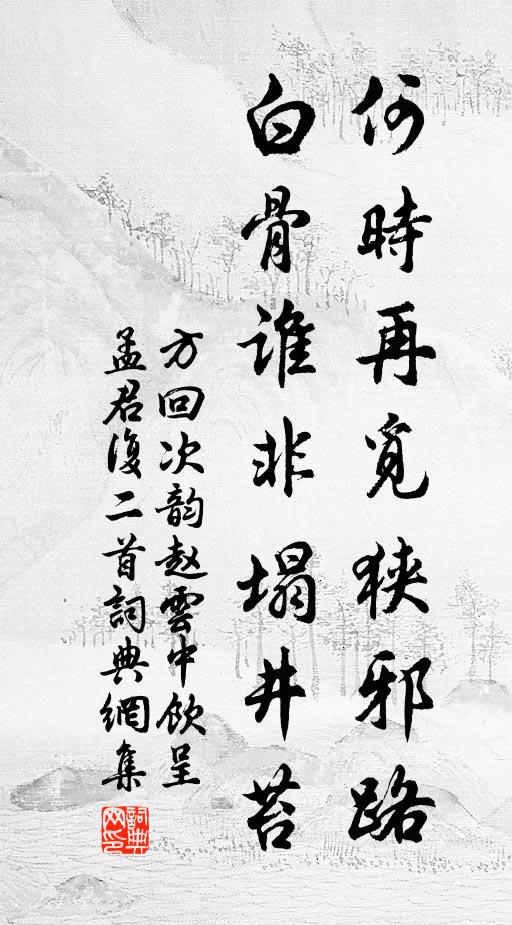 何時再覓狹邪路
白骨谁非塌井苔
方回次韵赵雲中飲呈
孟君復二首詞典網集
詞典網印